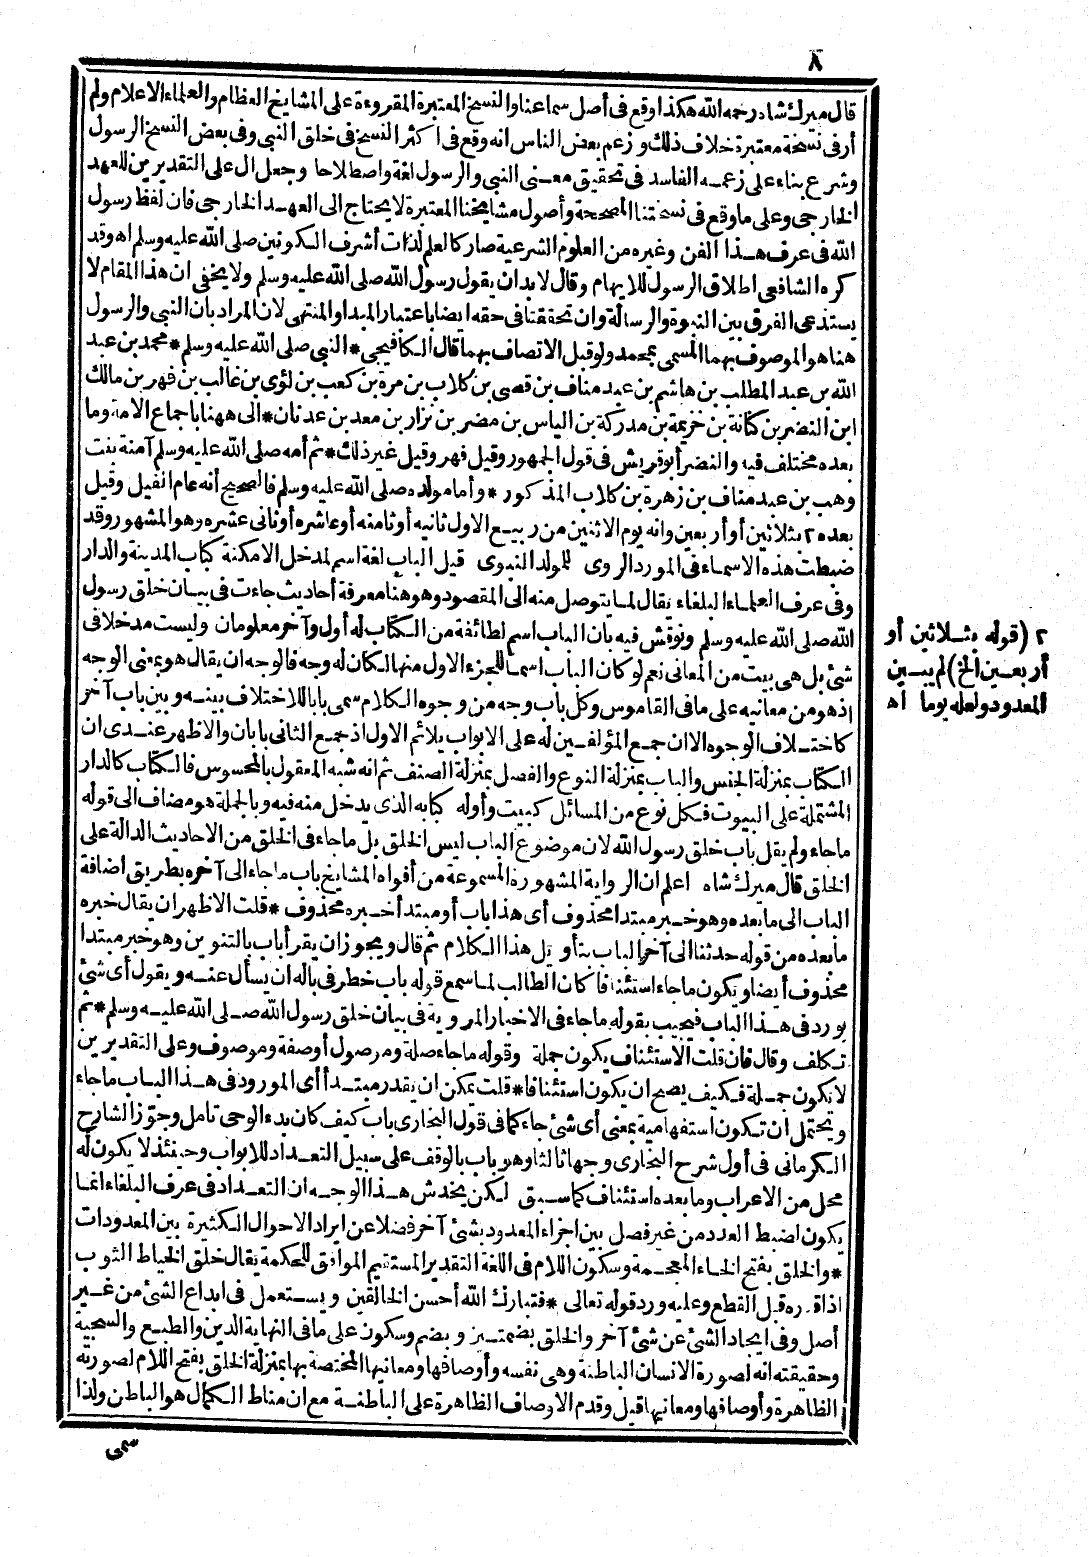 ٨
قال ميرك شاه رحمه الله هكذا وقع في أصل سماعنا والنسخ المعتبرة المقروءة على المشايخ العظام والعلماء الاعلام ولم
أر في نسخة معتبرة خلاف ذلك و زعم بعض الناس انه وقع في أكثر النسخ في خلق النبي وفي بعض النسخ الرسول
وشرع بناء على زعمه الفاسد في تحقيق معنى النبي والرسول لغة واصطلاحا وجعل ال على التقديرين للعهد
الخارجي وعلى ما وقع في نسختنا المصححة وأصول مشايخنا المعتبرة لا يحتاج الى العهد الخارجي فان لفظ رسول
الله في عرف هذا الفن وغيره من العلوم الشرعية صار كالعلم لذات أشرف الكونين صلى الله عليه وسلم اه وقد
كره الشافعي اطلاق الرسول للايهام وقال لابد ان يقول رسول الله صلى الله عليه وسلم ولا يخفى ان هذا المقام لا
يستدعي الفرق بين النبوة والرسالة وان تحققتا في حقه ايضا باعتبار المبدا والمنتهى لان المراد بان النبي والرسول
هنا هو الموصوف بهما المسمى بمحمد ولو قبل الاتصاف بهما قال الكافيجي * النبي صلى الله عليه وسلم * محمد بن عبد
الله بن عبد المطلب بن هاشم بن عبد مناف بن قصي بن كلاب بن مرة بن كعب بن لؤى بن غالب بن فهر بن مالك
ابن النضر بن كنانة بن خزيمة بن مدركة بن الياس بن مضر بن نزار بن معد بن عدنان * الى ههنا باجماع الامة وما
بعده مختلف فيه والنضر أبو قريش في قول الجمهور وقيل فهر وقيل غير ذلك * ثم أمه صلى الله عليه وسلم آمنة بنت
وهب بن عبد مناف بن زهرة بن كلاب المذكور * وأما مولده صلى الله عليه وسلم فالصحيح أنه عام الفيل وقيل
بعده ٢ بثلاثين أو أربعين وانه يوم الاثنين من ربيع الاول ثانيه أو ثامنه أو عاشره أو ثاني عشره وهو المشهور وقد
ضبطت هذه الاسماء في المورد الروى للمولد النبوى قيل الباب لغة اسم لمدخل الامكنة كباب المدينة والدار
وفي عرف العلماء البلغاء يقال لما يتوصل منه الى المقصود وهو هنا معرفة أحاديث جاءت في بيان خلق رسول
الله صلى الله عليه وسلم ونوقش فيه بان الباب اسم لطائفة من الكتاب له أول وآخر معلومان وليست مدخلا في
شئ بل هي بيت من المعاني نعم لو كان الباب اسما للجزء الاول منها لكان له وجه فالوجه ان يقال هو بمعنى الوجه
اذ هو من معانيه على ما في القاموس وكل باب وجه من وجوه الكلام سمى بابا للاختلاف بينه وبين باب آخر
كاختلاف الوجوه الا ان جمع المؤلفين له على الابواب يلائم الاول اذ جمع الثاني بابان والاظهر عندى ان
الكتاب بمنزلة الجنس والباب بمنزلة النوع والفصل بمنزلة الصنف ثم انه شبه المعقول بالمحسوس فالكتاب كالدار
المشتملة على البيوت فكل نوع من المسائل كبيت وأوله كبابه الذى يدخل منه فيه وبالجملة هو مضاف الى قوله
ما جاء ولم يقل باب خلق رسول الله لان موضوع الباب ليس الخلق بل ما جاء في الخلق من الاحاديث الدالة على
الخلق قال ميرك شاه اعلم ان الرواية المشهورة المسموعة من أفواه المشايخ باب ما جاء الى آخره بطريق اضافة
الباب الى ما بعده وهو خبر مبتدا محذوف أى هذا باب أو مبتدأ خبره محذوف * قلت الاظهر ان يقال خبره
ما بعده من قوله حدثنا الى آخر الباب بتأويل هذا الكلام ثم قال ويجوز ان يقرأ باب بالتنوين وهو خبر مبتدا
محذوف أيضا ويكون ما جاء استئنافا كان الطالب لما سمع قوله باب خطر في باله ان يسأل عنه ويقول أى شئ
يورد في هذا الباب فيجيب بقوله ما جاء في الاخبار المروية في بيان خلق رسول الله صلى الله عليه وسلم * ثم
تكلف وقال فان قلت الاستئناف يكون جملة وقوله ما جاء صلة وموصول أو صفة وموصوف وعلى التقديرين
لا تكون جملة فكيف يصح ان يكون استئنافا * قلت يمكن ان يقدر مبتدأ أى المورود في هذا الباب ما جاء
ويحتمل ان تكون استفهامية بمعنى أى شئ جاء كما في قول البخارى باب كيف كان بدء الوحي تامل وجوز الشارح
الكرماني في أول شرح البخارى وجها ثالثا وهو باب بالوقف على سبيل التعداد للابواب وحينئذ لا يكون له
محل من الاعراب وما بعده استئناف كما سبق لكن يخدش هذا الوجه ان التعداد في عرف البلغاء انما
يكون لضبط العدد من غير فصل بين اجزاء المعدود بشئ آخر فضلا عن ايراد الاحوال الكثيرة بين المعدودات
* والخلق بفتح الخاء المعجمة وسكون اللام في اللغة التقدير المستقيم الموافق للحكمة يقال خلق الخياط الثوب
اذا قدره قبل القطع وعليه ورد قوله تعالى * فتبارك الله أحسن الخالقين ويستعمل في ابداع الشئ من غير
أصل وفي ايجاد الشئ عن شئ آخر والخلق بضمتين وبضم وسكون على ما في النهاية الدين والطبع والسجية
وحقيقته انه لصورة الانسان الباطنة وهي نفسه وأوصافها ومعانيها المختصة بها بمنزلة الخلق بفتح اللام لصورته
الظاهرة وأوصافها ومعانيها قيل وقدم الاوصاف الظاهرة على الباطنة مع ان مناط الكمال هو الباطن ولذا
سمى
٢ (قوله بثلاثين أو
أربعين الخ) لم يبين
المعدود ولعله يوما اه